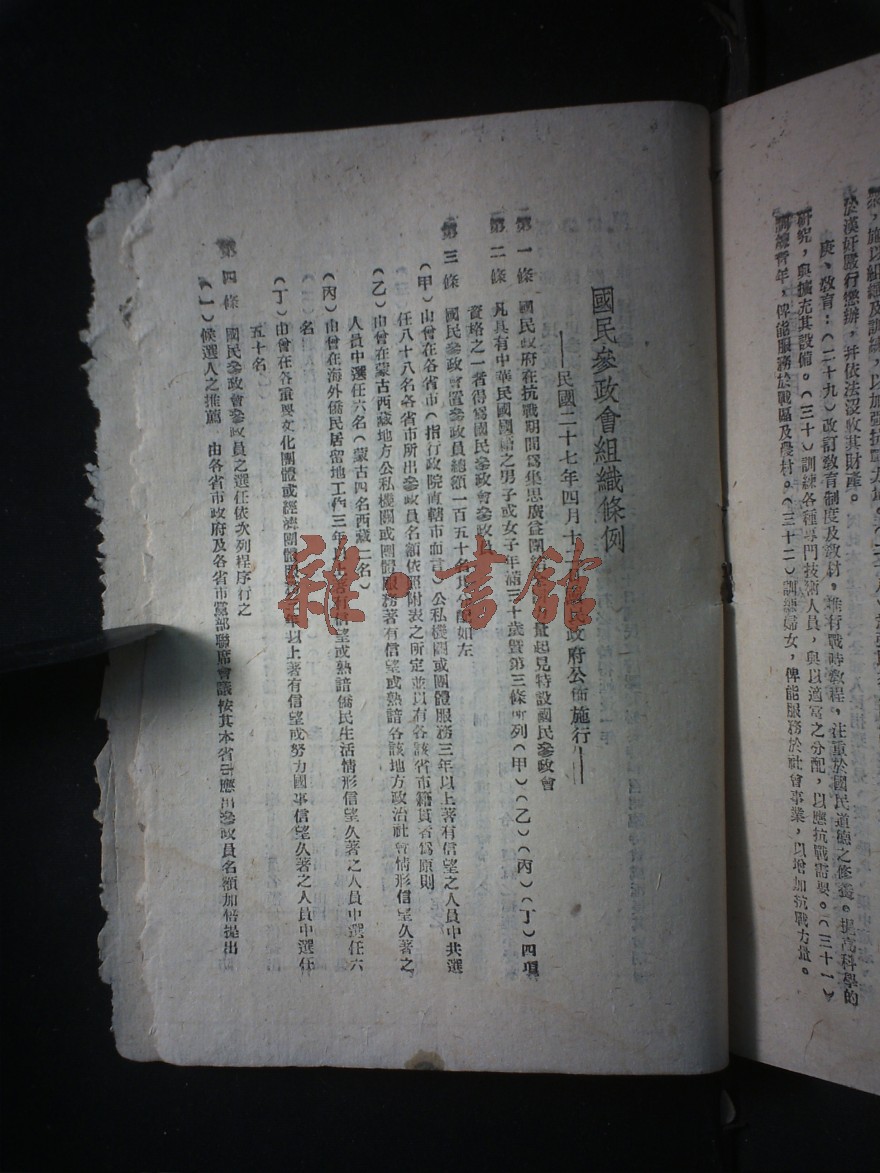 於漢奸嚴行懲辦，并依法沒收其財產。
庚、教育：（二十九）改訂教育制度及教材，推行戰時教程，注重於國民道德之修養。提高科學的
研究，與擴充其設備。（三十）訓練各種專門技術人員，與以適當之分配，以應抗戰需要。（三十一）
訓練青年，俾能服務於戰區及農村。（三十二）訓練婦女，俾能服務於社會事業，以增加抗戰力量。
國民參政會組織條例
——民國二十七年四月十二國民政府公佈施行——
第一條 國民政府在抗戰期間爲集思廣益團結量起見特設國民參政會
第二條 凡具有中華民國國籍之男子或女子年滿三十歲暨第三條所列（甲）（乙）（丙）（丁）四項
資格之一者得爲國民參政會參政員
第三條 國民參政會置參政員總額一百五十名其分配如左
（甲）由曾在各省市（指行政院直轄市而言）公私機關或團體服務三年以上著有信望之人員中共選
任八十八名各省市所出參政員名額依照附表之所定並以有各該省市籍貫者爲原則
（乙）由曾在蒙古西藏地方公私機關或團體服務著有信望或熟諳各該地方政治社會情形信望久著之
人員中選任六名（蒙古四名西藏二名）
（丙）由曾在海外僑民居留地工作三年以上著有信望或熟諳僑民生活情形信望久著之人員中選任六
名
（丁）由曾在各重要文化團體或經濟團體服務三年以上著有信望或努力國事信望久著之人員中選任
五十名
第四條 國民參政會參政員之選任依次列程序行之
（一）候選人之推薦 由各省市政府及各省市黨部聯席會議按其本省市應出參政員名額加倍提出
雜·書館